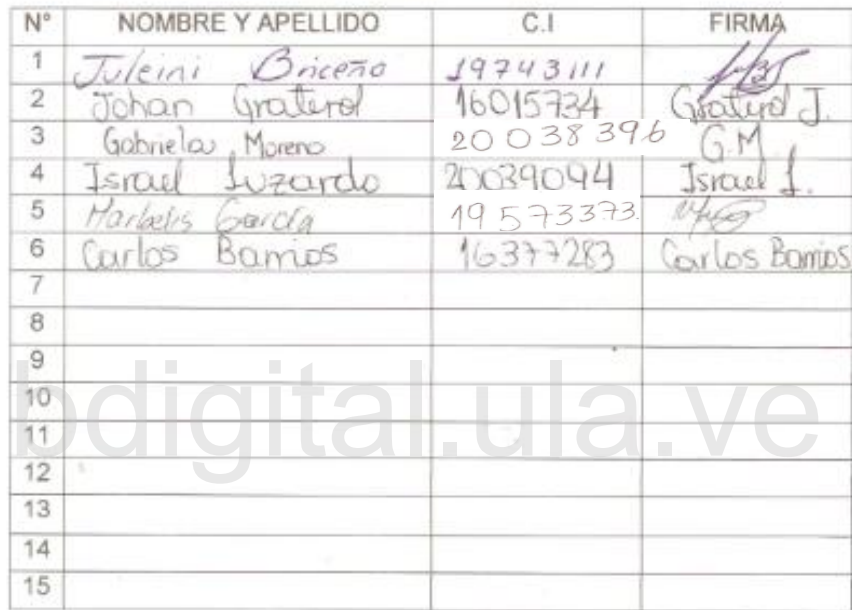 N° NOMBRE Y APELLIDO C.I FIRMA
1 Juleini Briceño 19743111
2 Johan Graterol 16015734 Graterol J.
3 Gabriela Moreno 20038396 G.M
4 Israel Luzardo 20039094 Israel L.
5 Marbelis García 19573373.
6 Carlos Barrios 16377283 Carlos Barrios
7
8
9
10
11
12
13
14
15
bdigital.ula.ve